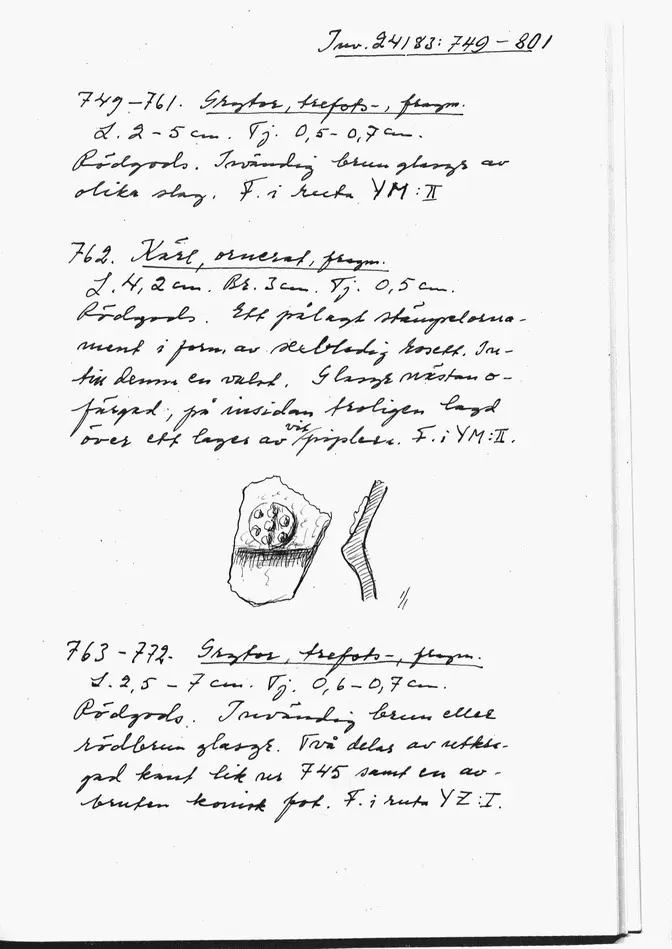 Inv. 24183: 749 – 801
749–761. Grytor, trefots-, fragm.
L. 2 – 5 cm. Tj. 0,5 – 0,7 cm.
Rödgods. Invändig brun glasyr av
olika slag. F. i ruta YM:II
762. Kärl, ornerat, fragm.
L. 4,2 cm. Br. 3 cm. Tj. 0,5 cm.
Rödgods. Ett pålagt stämpelorna-
ment i form av sexbladig rosett. In-
till denna en valst. Glasyr nästan o-
färgad, på insidan troligen lagd
över ett lager av vit piplera. F. i YM:II.
1/1
763 – 772. Grytor, trefots-, fragm.
L. 2,5 – 7 cm. Tj. 0,6 – 0,7 cm.
Rödgods. Invändig brun eller
rödbrun glasyr. Två delar av utkra-
gad kant lik nr 745 samt en av-
bruten konisk fot. F. i ruta YZ:I.